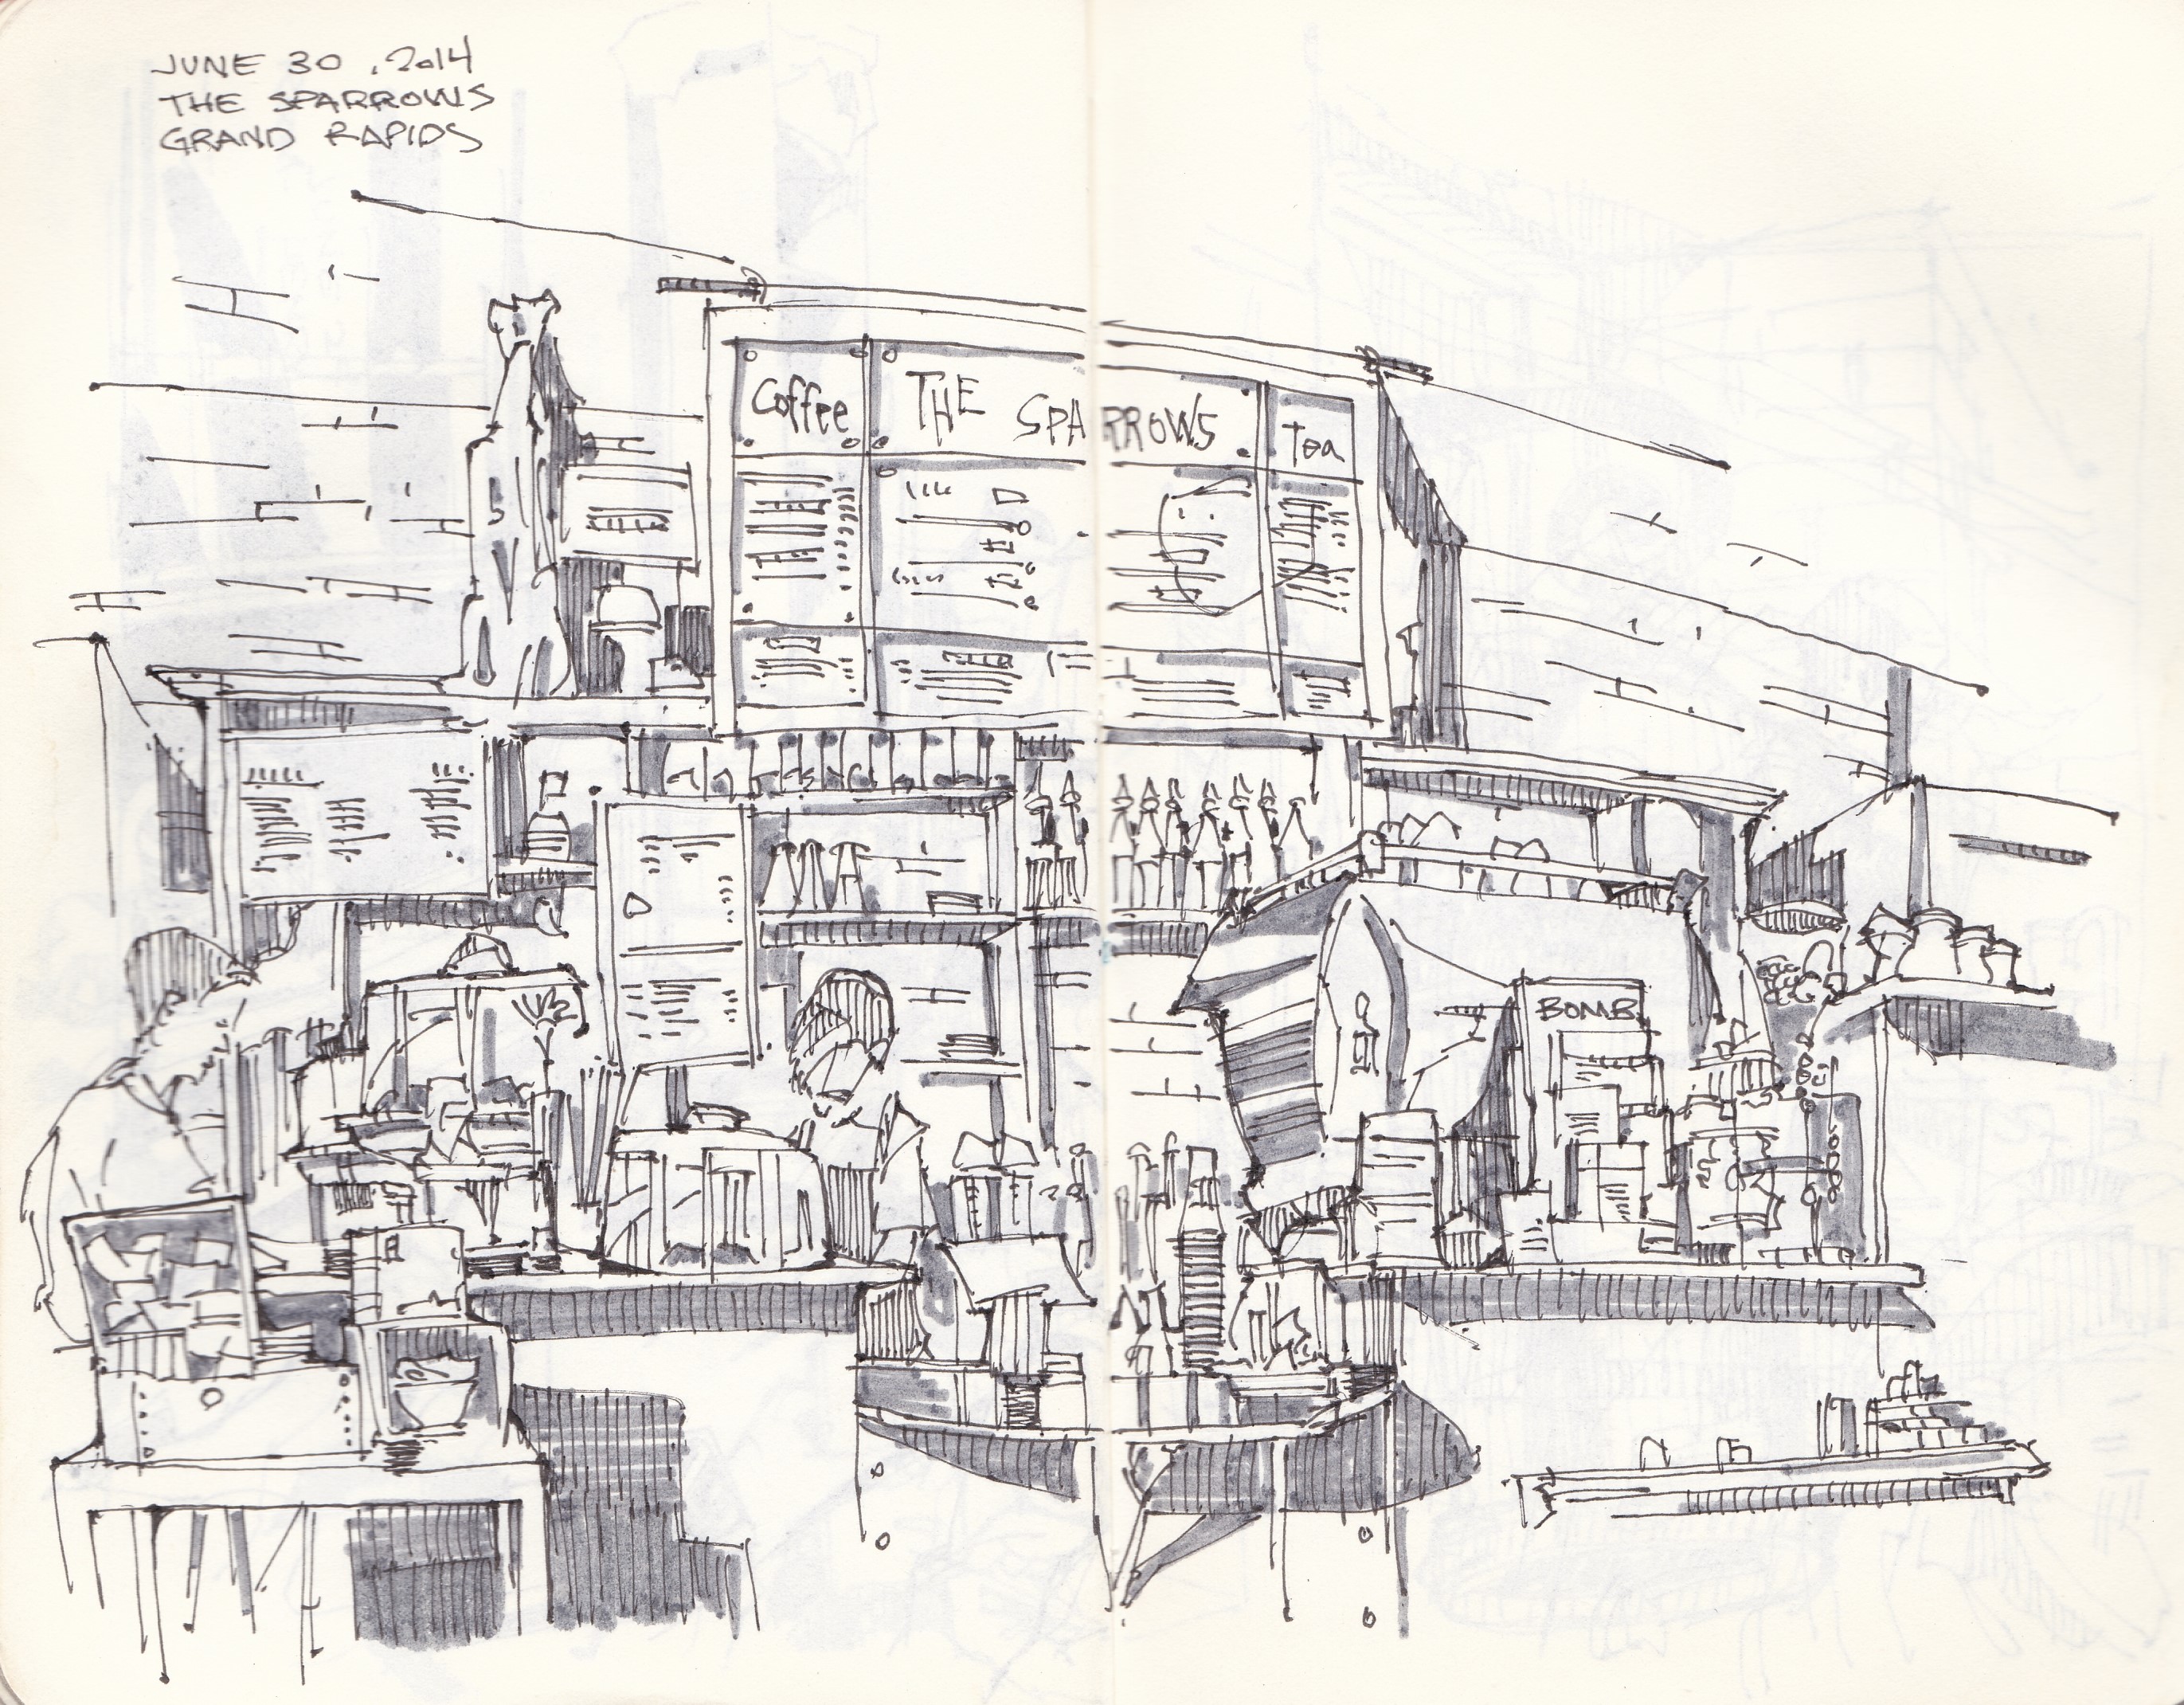 JUNE 30, 2014
THE SPARROWS
GRAND RAPIDS
Coffee
THE SPARROWS
Tea
BOMB